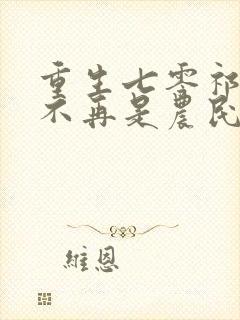 重生七零祁
不再是農民
維恩